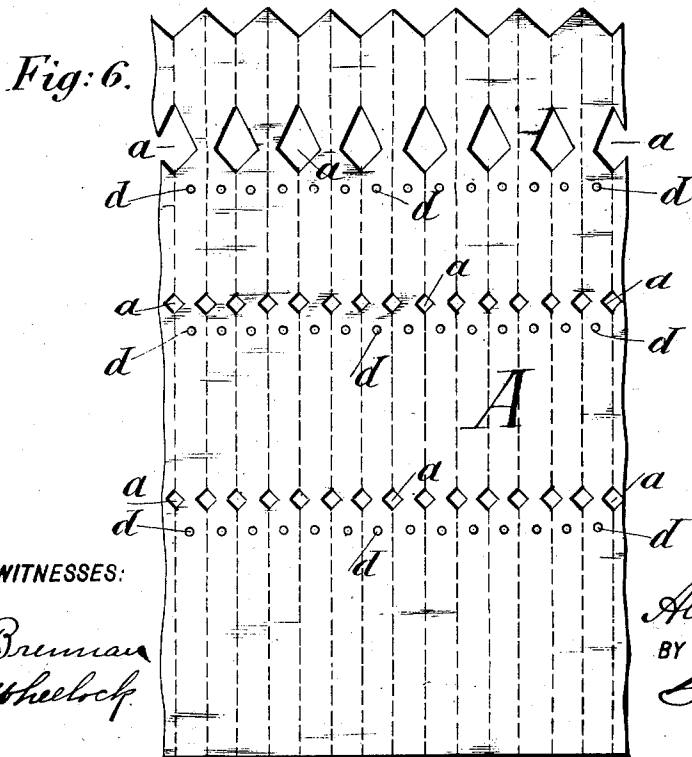 Fig: 6.
a a a
d d d
a a a
d d d
A
a a a
d d d
WITNESSES:
Brennan
Wheelock.
BY